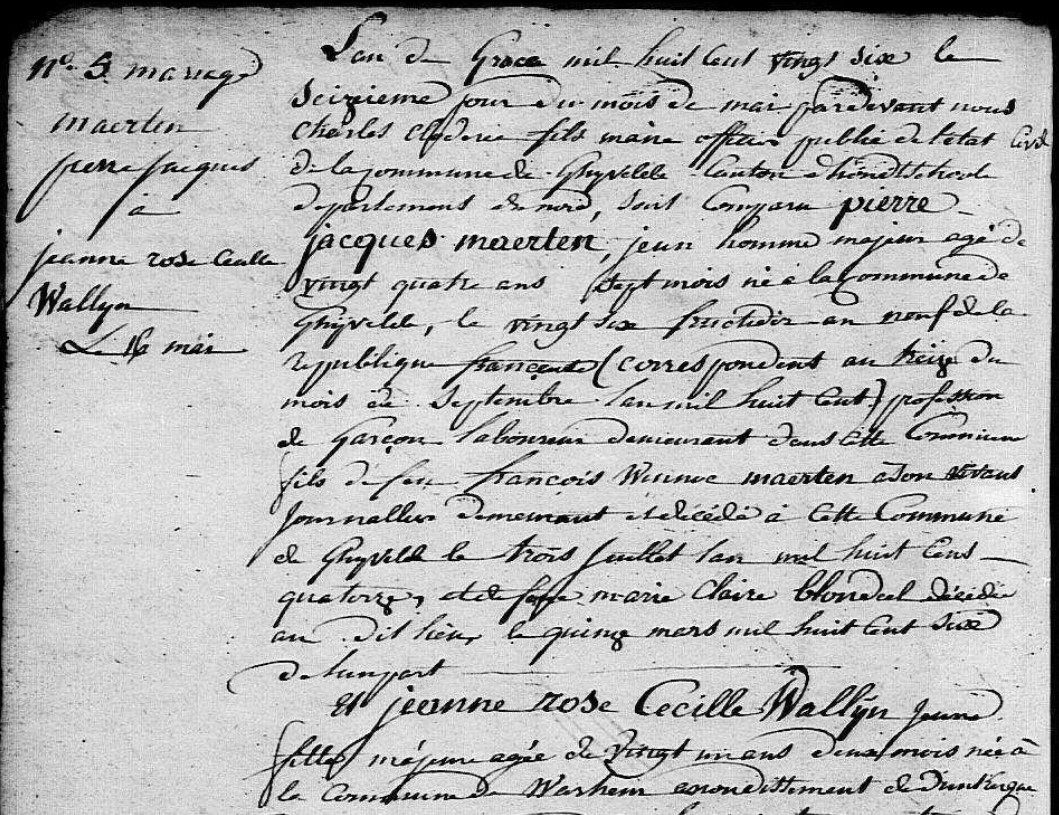 n°. 5 mariage
maerten
pierre jacques
à
jeanne rose Cecille
Wallyn
Le 16 mai
L'an de Grace mil huit Cent vingt six le
Seizieme jour du mois de mai pardevant nous
Charles fils maire officier public de l'etat Civil
de la commune de Ghyvelde Canton d'hondschoote
departement du nord, sont Comparu pierre
jacques maerten, jeun homme majeur agé de
vingt quatre ans Sept mois né à la Commune de
Ghyvelde, le vingt six fructidor an neuf de la
republique francaise (correspondent au treize du
mois de Septembre l'an mil huit Cent) profession
de Garçon laboureur demeurant dans Cette Commune
fils de feu françois Winnoc maerten à son vivant
Journallier demeurant et décédé à Cette Commune
de Ghyvelde le trois Juillet l'an mil huit Cens
quatorze, et de feue marie Claire blondeel décédée
au dit lieu, le quinze mars mil huit Cent Six
d'une part
Et jeanne rose Cecille Wallyn jeune
fille majeure agée de vingt un ans deux mois née à
la Commune de Warhem arrondissement de Dunkerque